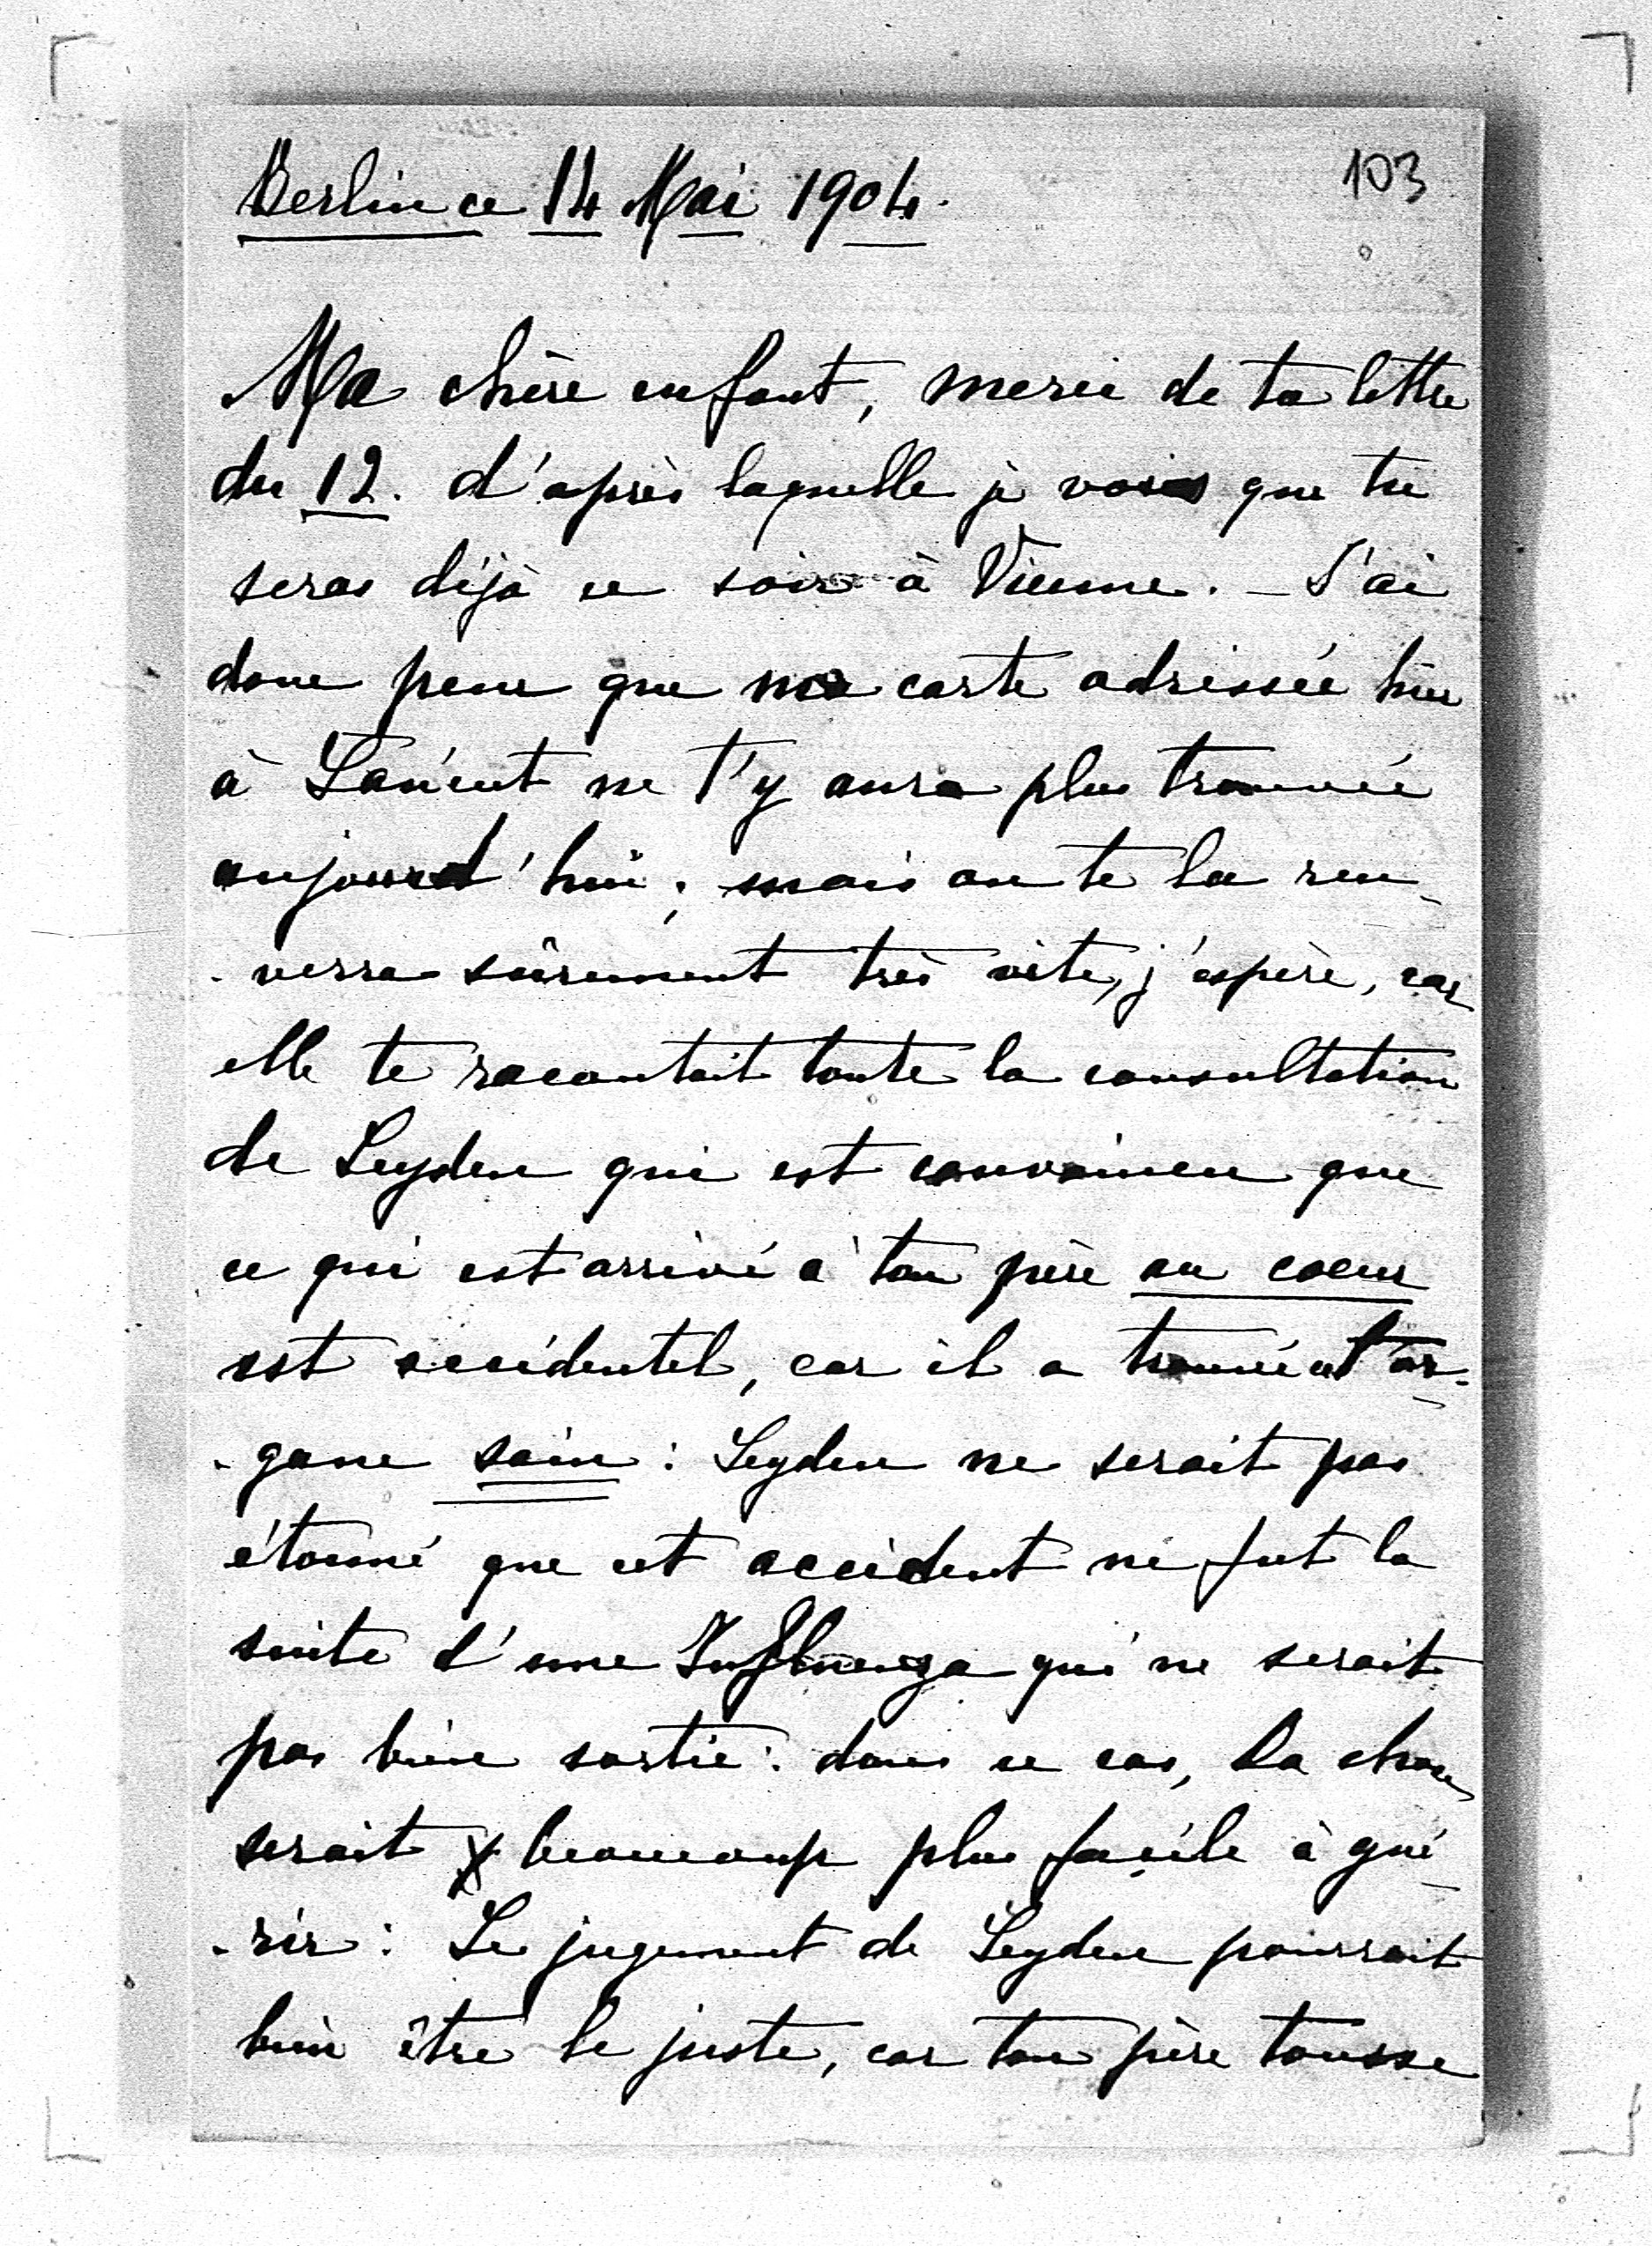 103
Berlin ce 14 Mai 1904.
Ma chère enfant, merci de ta lettre
du 12. d'après laquelle je vois que tu
seras déjà ce soir à Vienne. – J'ai
donc peur que ma carte adressée hier
à Lancut ne t'y aura plus trouvée
aujourd'hui ; mais on te la ren-
-verra sûrement très vite, j'espère, car
elle te racontait toute la consultation
de Leyden qui est convaincu que
ce qui est arrivé à ton père au coeur
est accidentel, car il a trouvé cet or-
-gane sain : Leyden ne serait pas
étonné que cet accident ne fut la
suite d'une Influenza qui ne serait
pas bien sortie : dans ce cas, la chose
serait beaucoup plus facile à gué-
-rir : Le jugement de Leyden pourrait
bien être le juste, car ton père tousse